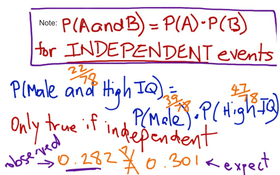 Note: P(A and B) = P(A) · P(B)
for INDEPENDENT events
22/78
P(Male and High IQ) =
39/78 47/78
P(Male) · P(High IQ)
Only true if independent
observed 0.282 ≠ 0.301 ← expect